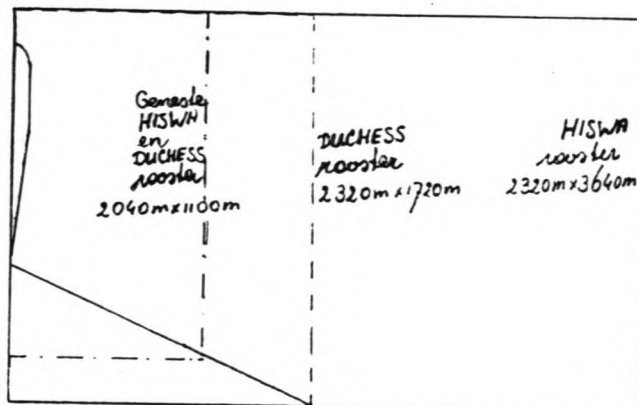 Geneste
HISWA
en
DUCHESS
rooster
2040m x 1100m
DUCHESS
rooster
2320m x 1720m
HISWA
rooster
2320m x 3640m